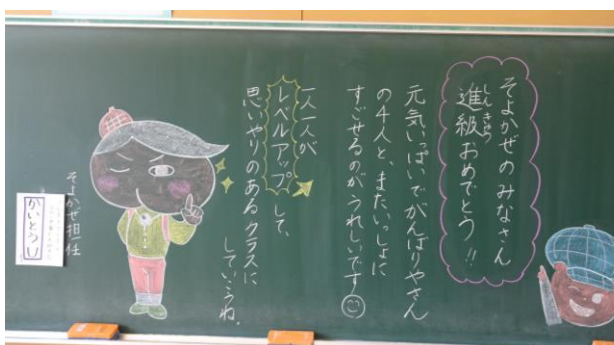 そよかぜのみなさん
進級おめでとう!!
しんきゅう
元気いっぱいでがんばりやさん
の4人と、またいっしょに
すごせるのがうれしいです
一人一人が
レベルアップして、
思いやりのあるクラスに
していこうね。
そよかぜ担任
かいとうU